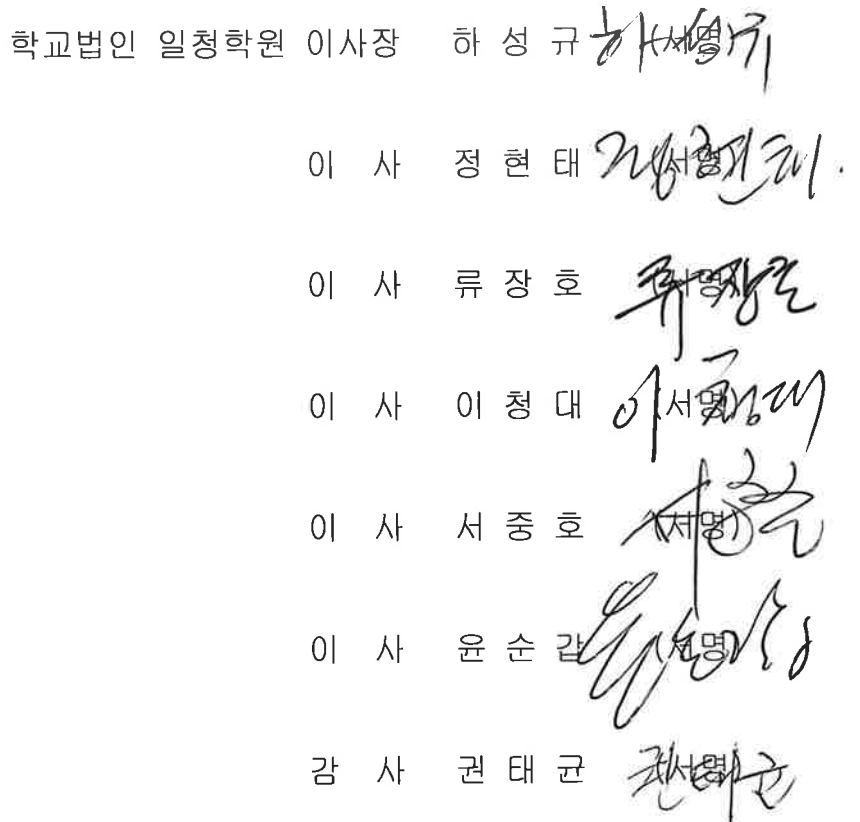 학교법인 일청학원 이사장 하 성 규 (서명)
이 사 정 현 태 (서명)
이 사 류 장 호 (서명)
이 사 이 청 대 (서명)
이 사 서 중 호 (서명)
이 사 윤 순 갑 (서명)
감 사 권 태 균 (서명)